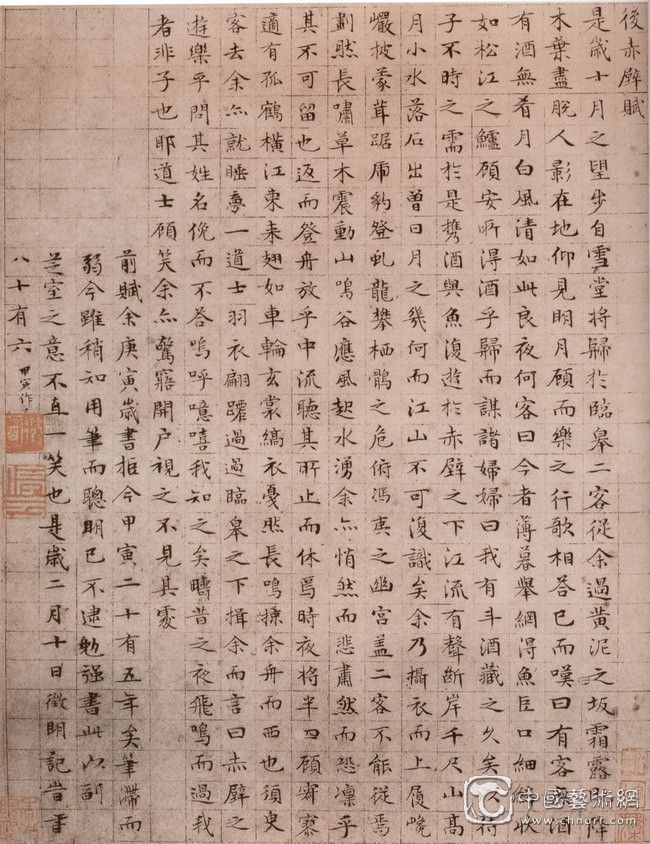 後赤壁賦
是歲十月之望步自雪堂將歸於臨皋二客從余過黃泥之坂霜露既降
木葉盡脫人影在地仰見明月顧而樂之行歌相荅已而嘆曰有客無酒
有酒無肴月白風清如此良夜何客曰今者薄暮舉網得魚巨口細鱗狀
如松江之鱸顧安所得酒乎歸而謀諸婦婦曰我有斗酒藏之久矣以待
子不時之需於是携酒與魚復遊於赤壁之下江流有聲斷岸千尺山高
月小水落石出曾日月之幾何而江山不可復識矣余乃攝衣而上履巉
巖披蒙茸踞虎豹登虬龍攀栖鶻之危俯馮夷之幽宮盖二客不能從焉
劃然長嘯草木震動山鳴谷應風起水湧余亦悄然而悲肅然而恐凛乎
其不可留也返而登舟放乎中流聽其所止而休焉時夜將半四顧寂寥
適有孤鶴橫江東来翅如車輪玄裳縞衣戛然長鳴掠余舟而西也須臾
客去余亦就睡夢一道士羽衣翩躚過過臨皋之下揖余而言曰赤壁之
遊樂乎問其姓名俛而不荅嗚呼噫嘻我知之矣疇昔之夜飛鳴而過我
者非子也耶道士顧笑余亦驚寤開户視之不見其處
前賦余庚寅歲書拒今甲寅二十有五年矣筆滯而
弱今雖稍知用筆而聰明已不逮勉强書此以副
芝室之意不直一笑也是歲二月十日徵明記
八十有六
甲寅作
中國藝術網
www.chnart.com